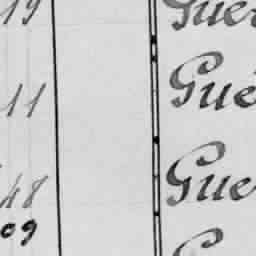 19 Guer
11 Gué
48 Gue
09